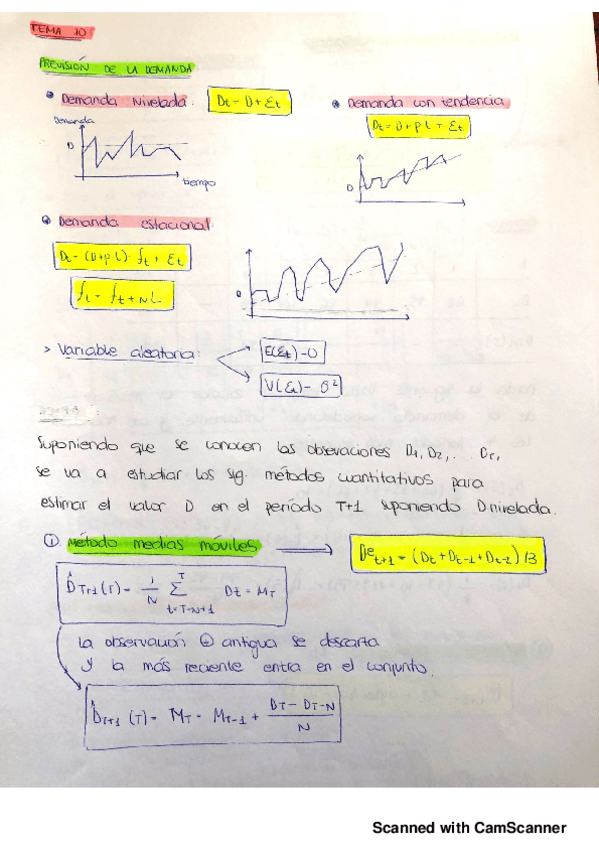 TEMA 10
PREVISIÓN DE LA DEMANDA
Demanda Nivelada: Dt = D + Ɛt
Demanda
D
tiempo
Demanda con tendencia
Dt = D + p t + Ɛt
D
Demanda estacional
Dt = (D + p t) · ft + Ɛt
ft = ft+NL
D
> Variable aleatoria:
E(Ɛt) = 0
V(Ɛt) = σ²
Suponiendo que se conocen las observaciones D1, D2, ... DT,
se va a estudiar los sig. métodos cuantitativos para
estimar el valor D en el período T+1 suponiendo D.nivelada.
① Método medias móviles → Det+1 = (Dt + Dt-1 + Dt-2) / 3
D̂T+1(T) = 1/N Σ T t=T-N+1 Dt = MT
La observación ⊕ antigua se descarta
y la más reciente entra en el conjunto.
D̂T+1 (T) = MT = MT-1 + DT - DT-N / N
Scanned with CamScanner